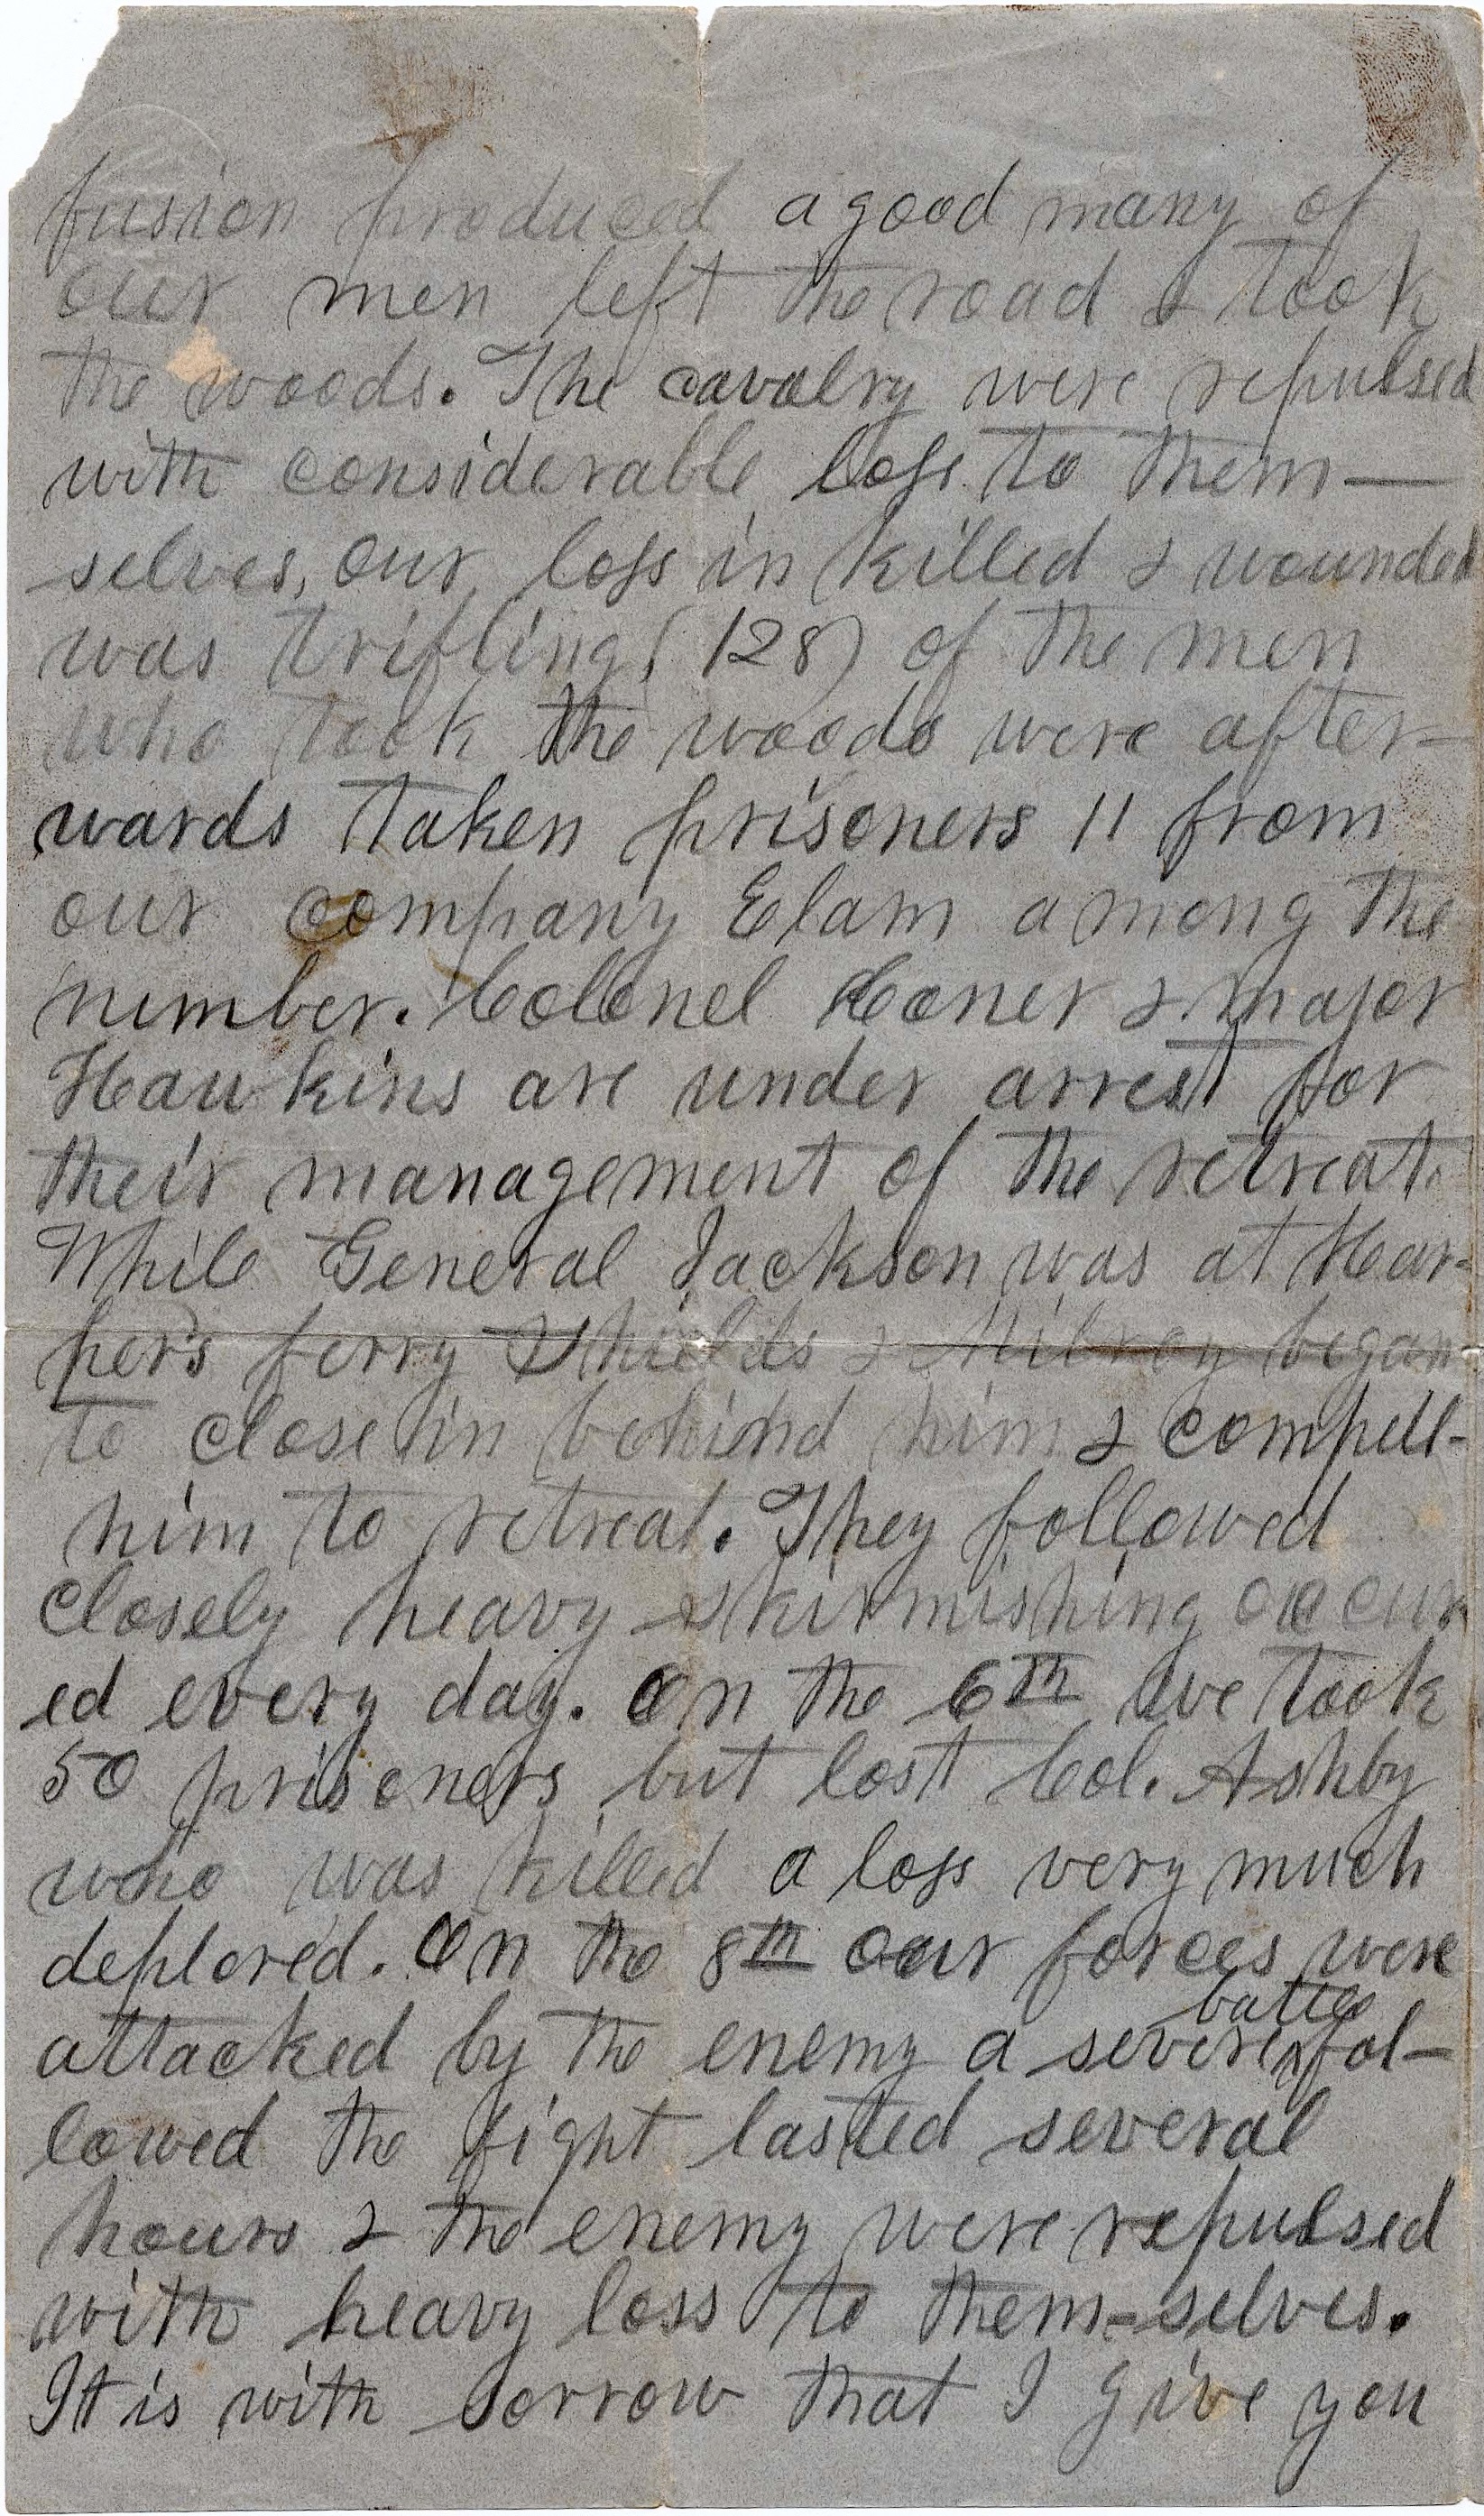 fusion produced a good many of
our men left the road & took
the woods. The cavalry were repulsed
with considerable loss to them—
selves, our loss in killed & wounded
was trifling (128) of the men
who took the woods were after-
wards taken prisoners 11 from
our company Elam among the
number. Colonel Coner & Major
Hawkins are under arrest for
their management of the retreat.
While General Jackson was at Har-
pers ferry Shields & Milroy began
to close in behind him & compell-
him to retreat. They followed
closely heavy skirmishing occur
ed every day. On the 6th we took
50 prisoners but lost Col. Ashby
who was killed a loss very much
deplored. On the 8th our forces were
battle
attacked by the enemy a severe ^ fol-
lowed the fight lasted several
hours & the enemy were repulsed
with heavy loss to them-selves.
It is with sorrow that I give you